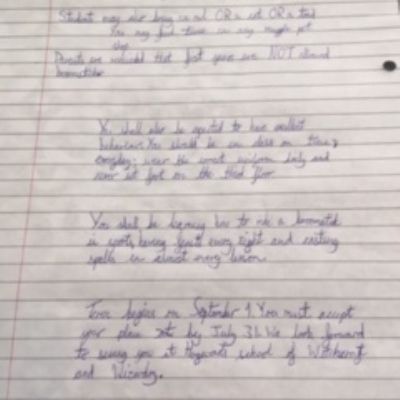 Student may also bring an owl OR a cat OR a toad
You may find these in any muggle pet
shop
Parents are reminded that first years are NOT allowed
broomsticks
You shall also be expected to have excellent
behaviour. You should be in class on time,
everyday; wear the correct uniform daily and
never set foot on the third floor
You shall be learning how to ride a broomstick
in sports, having feasts every night and casting
spells in almost every lesson.
Term begins on September 1. You must accept
your place by July 31. We look forward
to seeing you at Hogwarts school of Witchcraft
and Wizardry.